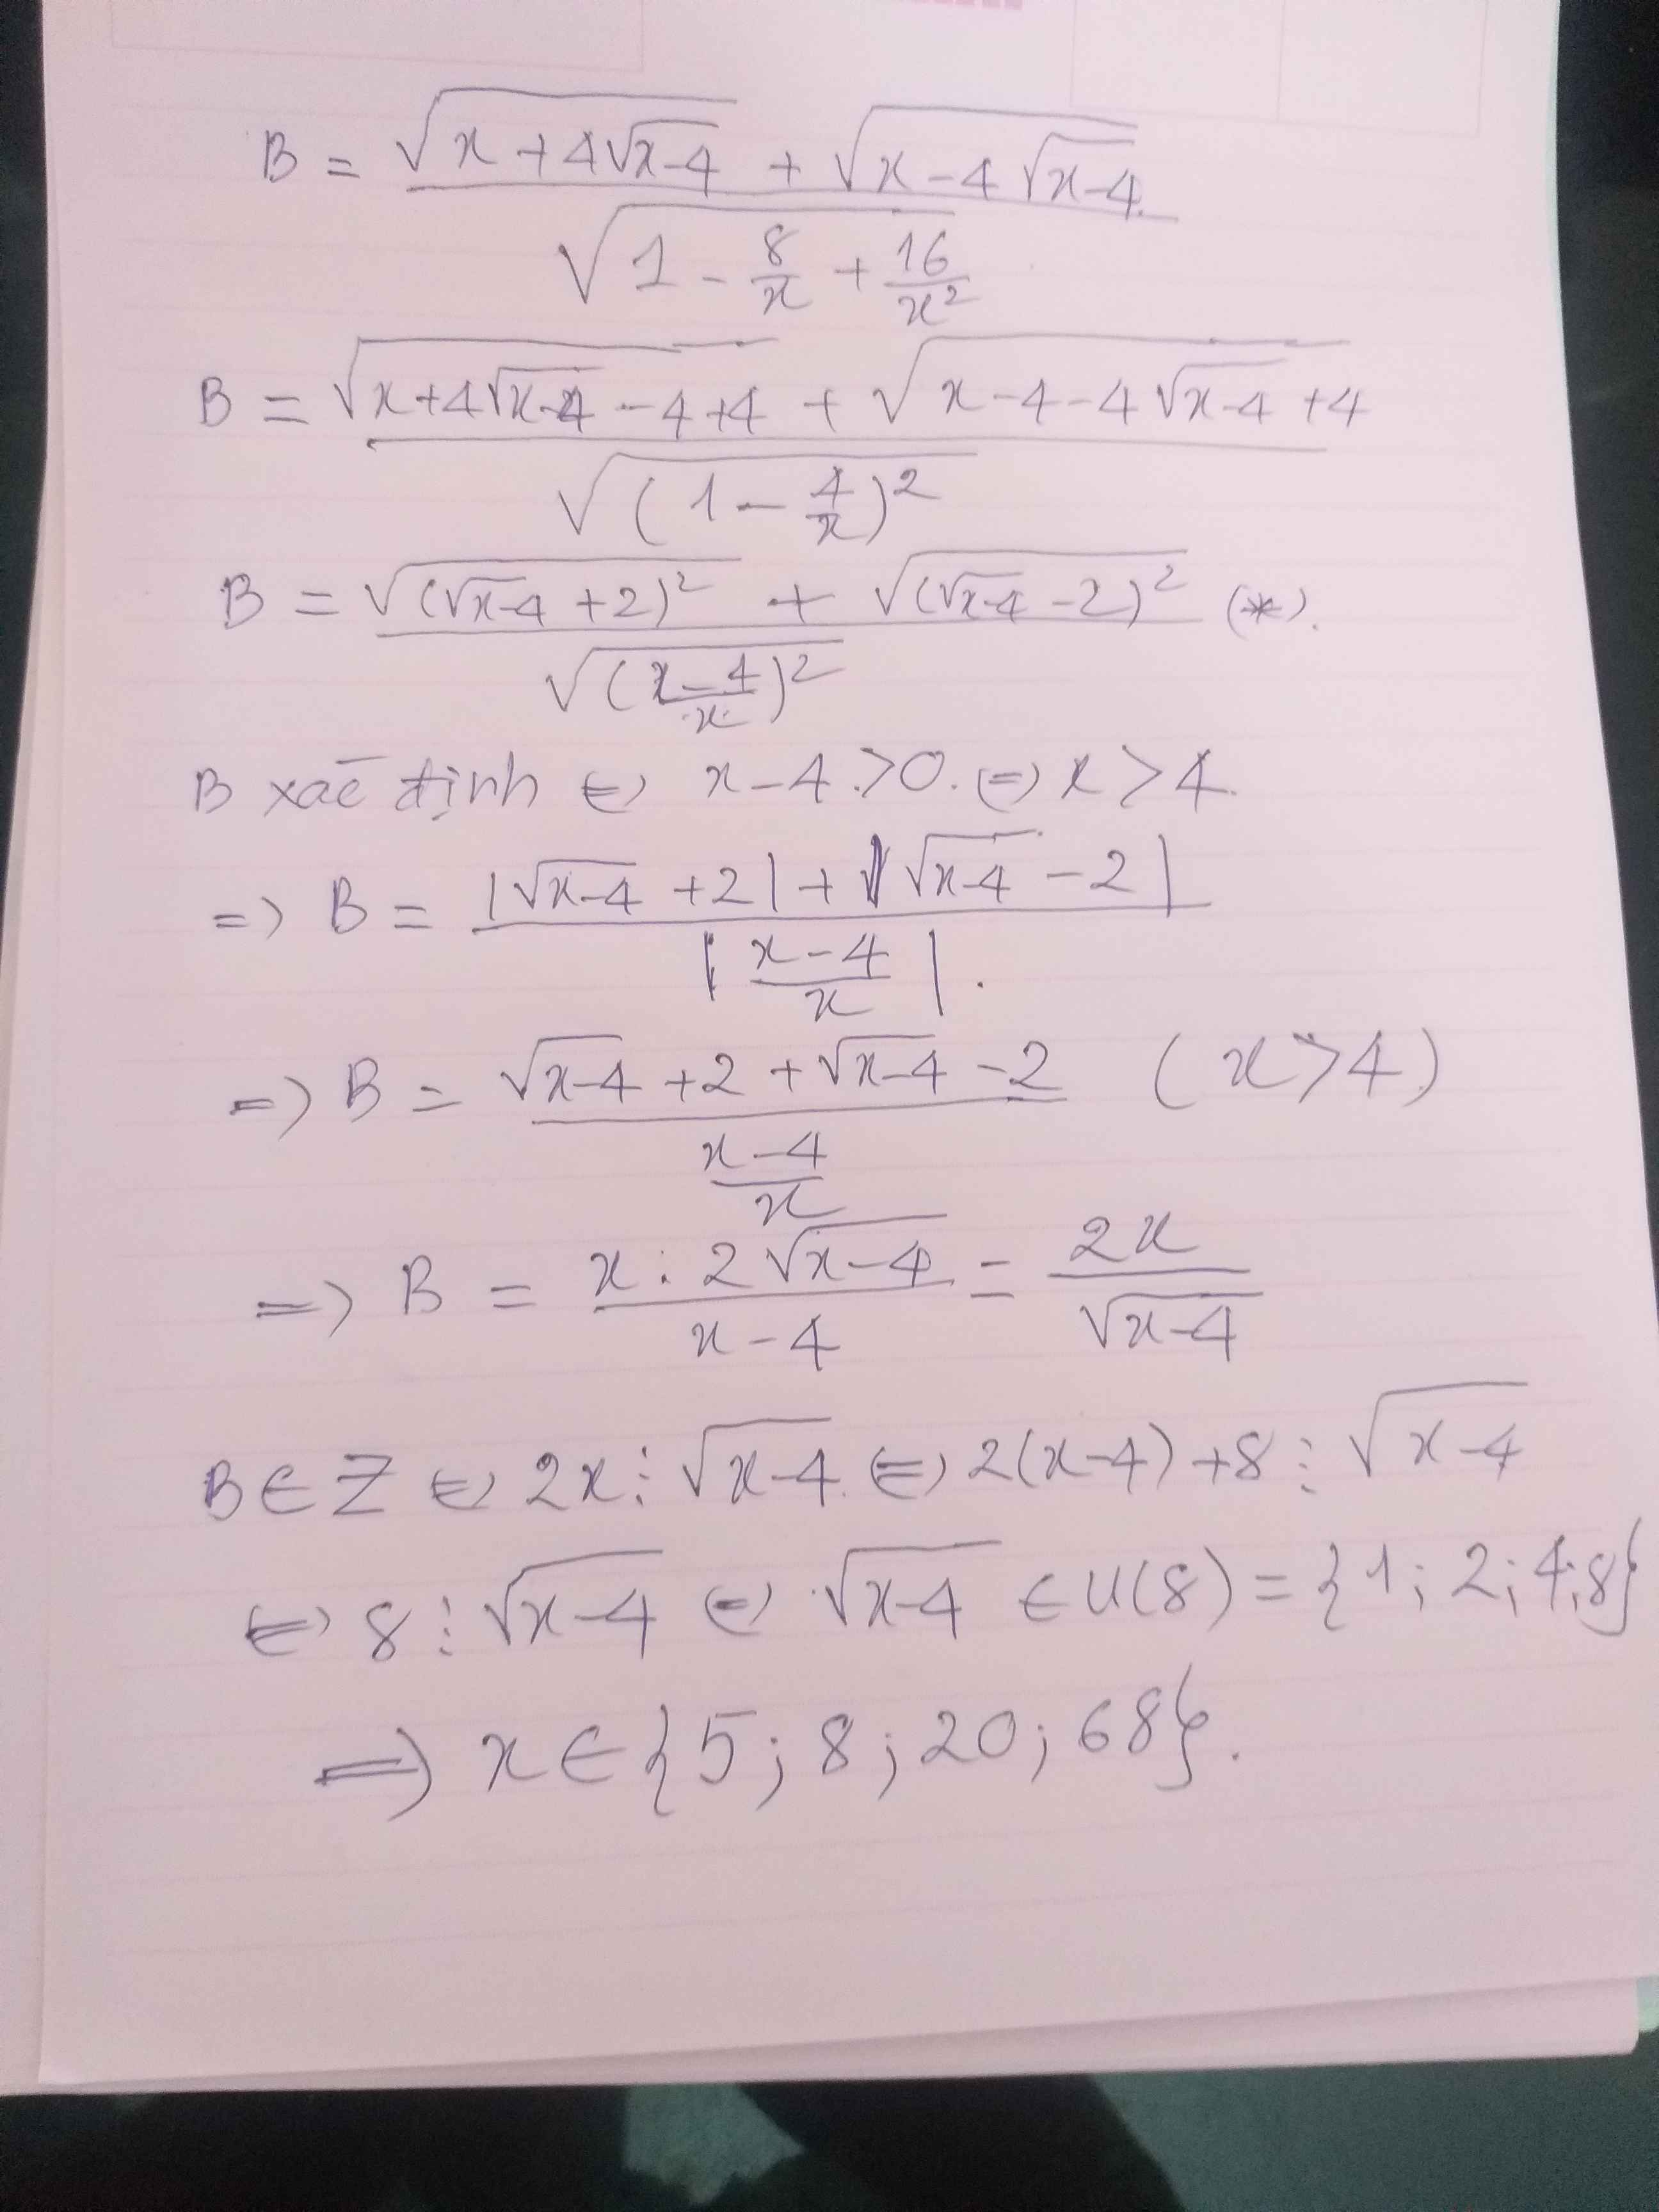 B = (√(x+4√(x-4)) + √(x-4√(x-4))) / √(1 - 8/x + 16/x²)
B = (√(x+4√(x-4) -4+4) + √(x-4-4√(x-4)+4)) / √((1-4/x)²)
B = (√((√(x-4)+2)²) + √((√(x-4)-2)²)) / √(((x-4)/x)²) (*).
B xác định ⇔ x-4>0. ⇔ x>4.
=> B = (|√(x-4)+2| + |√(x-4)-2|) / |(x-4)/x|.
=> B = (√(x-4)+2+√(x-4)-2) / ((x-4)/x) (x>4)
=> B = (x.2√(x-4)) / (x-4) = 2x/√(x-4)
B∈Z ⇔ 2x⋮√(x-4). ⇔ 2(x-4)+8⋮√(x-4)
⇔ 8⋮√(x-4) ⇔ √(x-4) ∈ U(8) = {1; 2; 4; 8}
=> x∈{5; 8; 20; 68}.